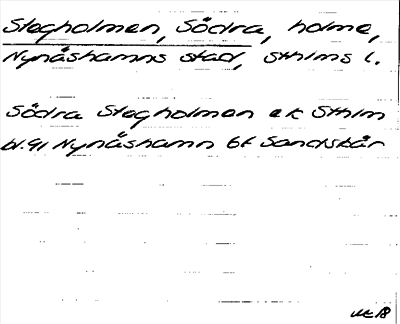 Stegholmen, Södra, holme,
Nynäshamns stad, Sthlms l.
Södra Stegholmen ek Sthlm
bl. 91 Nynäshamn 6f Sandskär